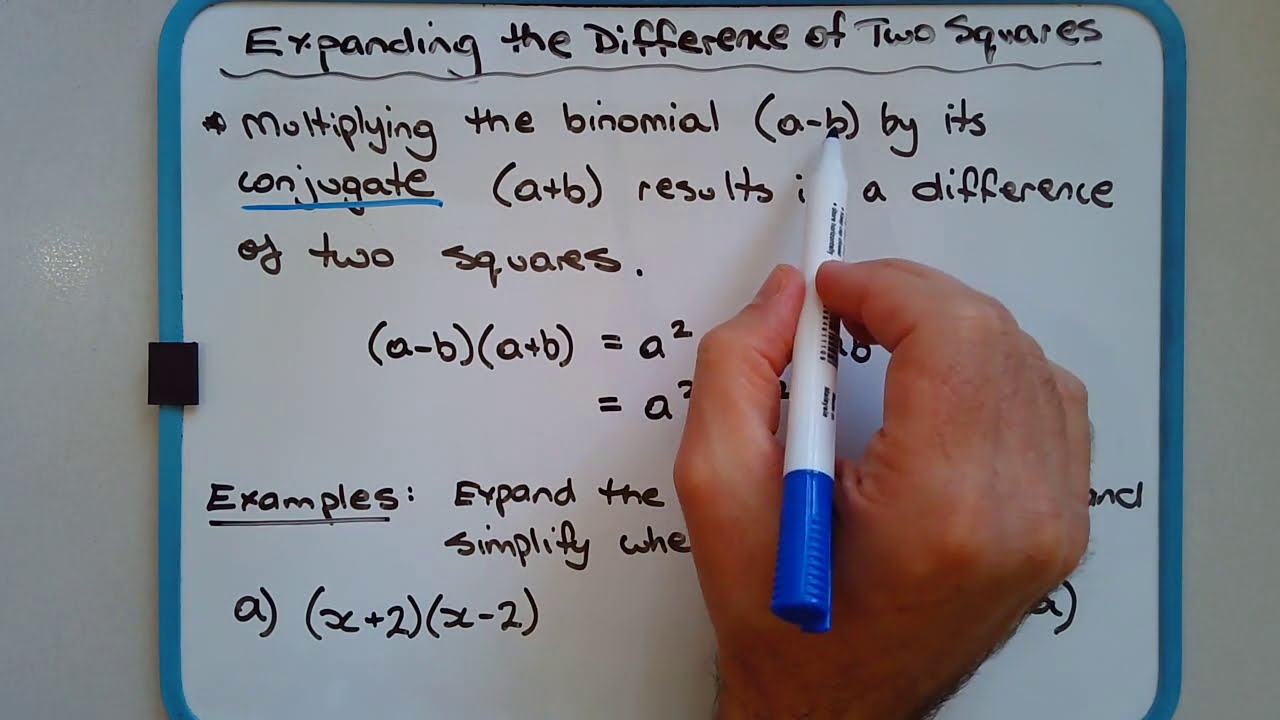 Expanding the Difference of Two Squares
* Multiplying the binomial (a-b) by its
conjugate (a+b) results a difference
of two squares.
(a-b)(a+b) = a² ab
= a²
Examples: Expand the and
simplify
a) (x+2)(x-2) a)